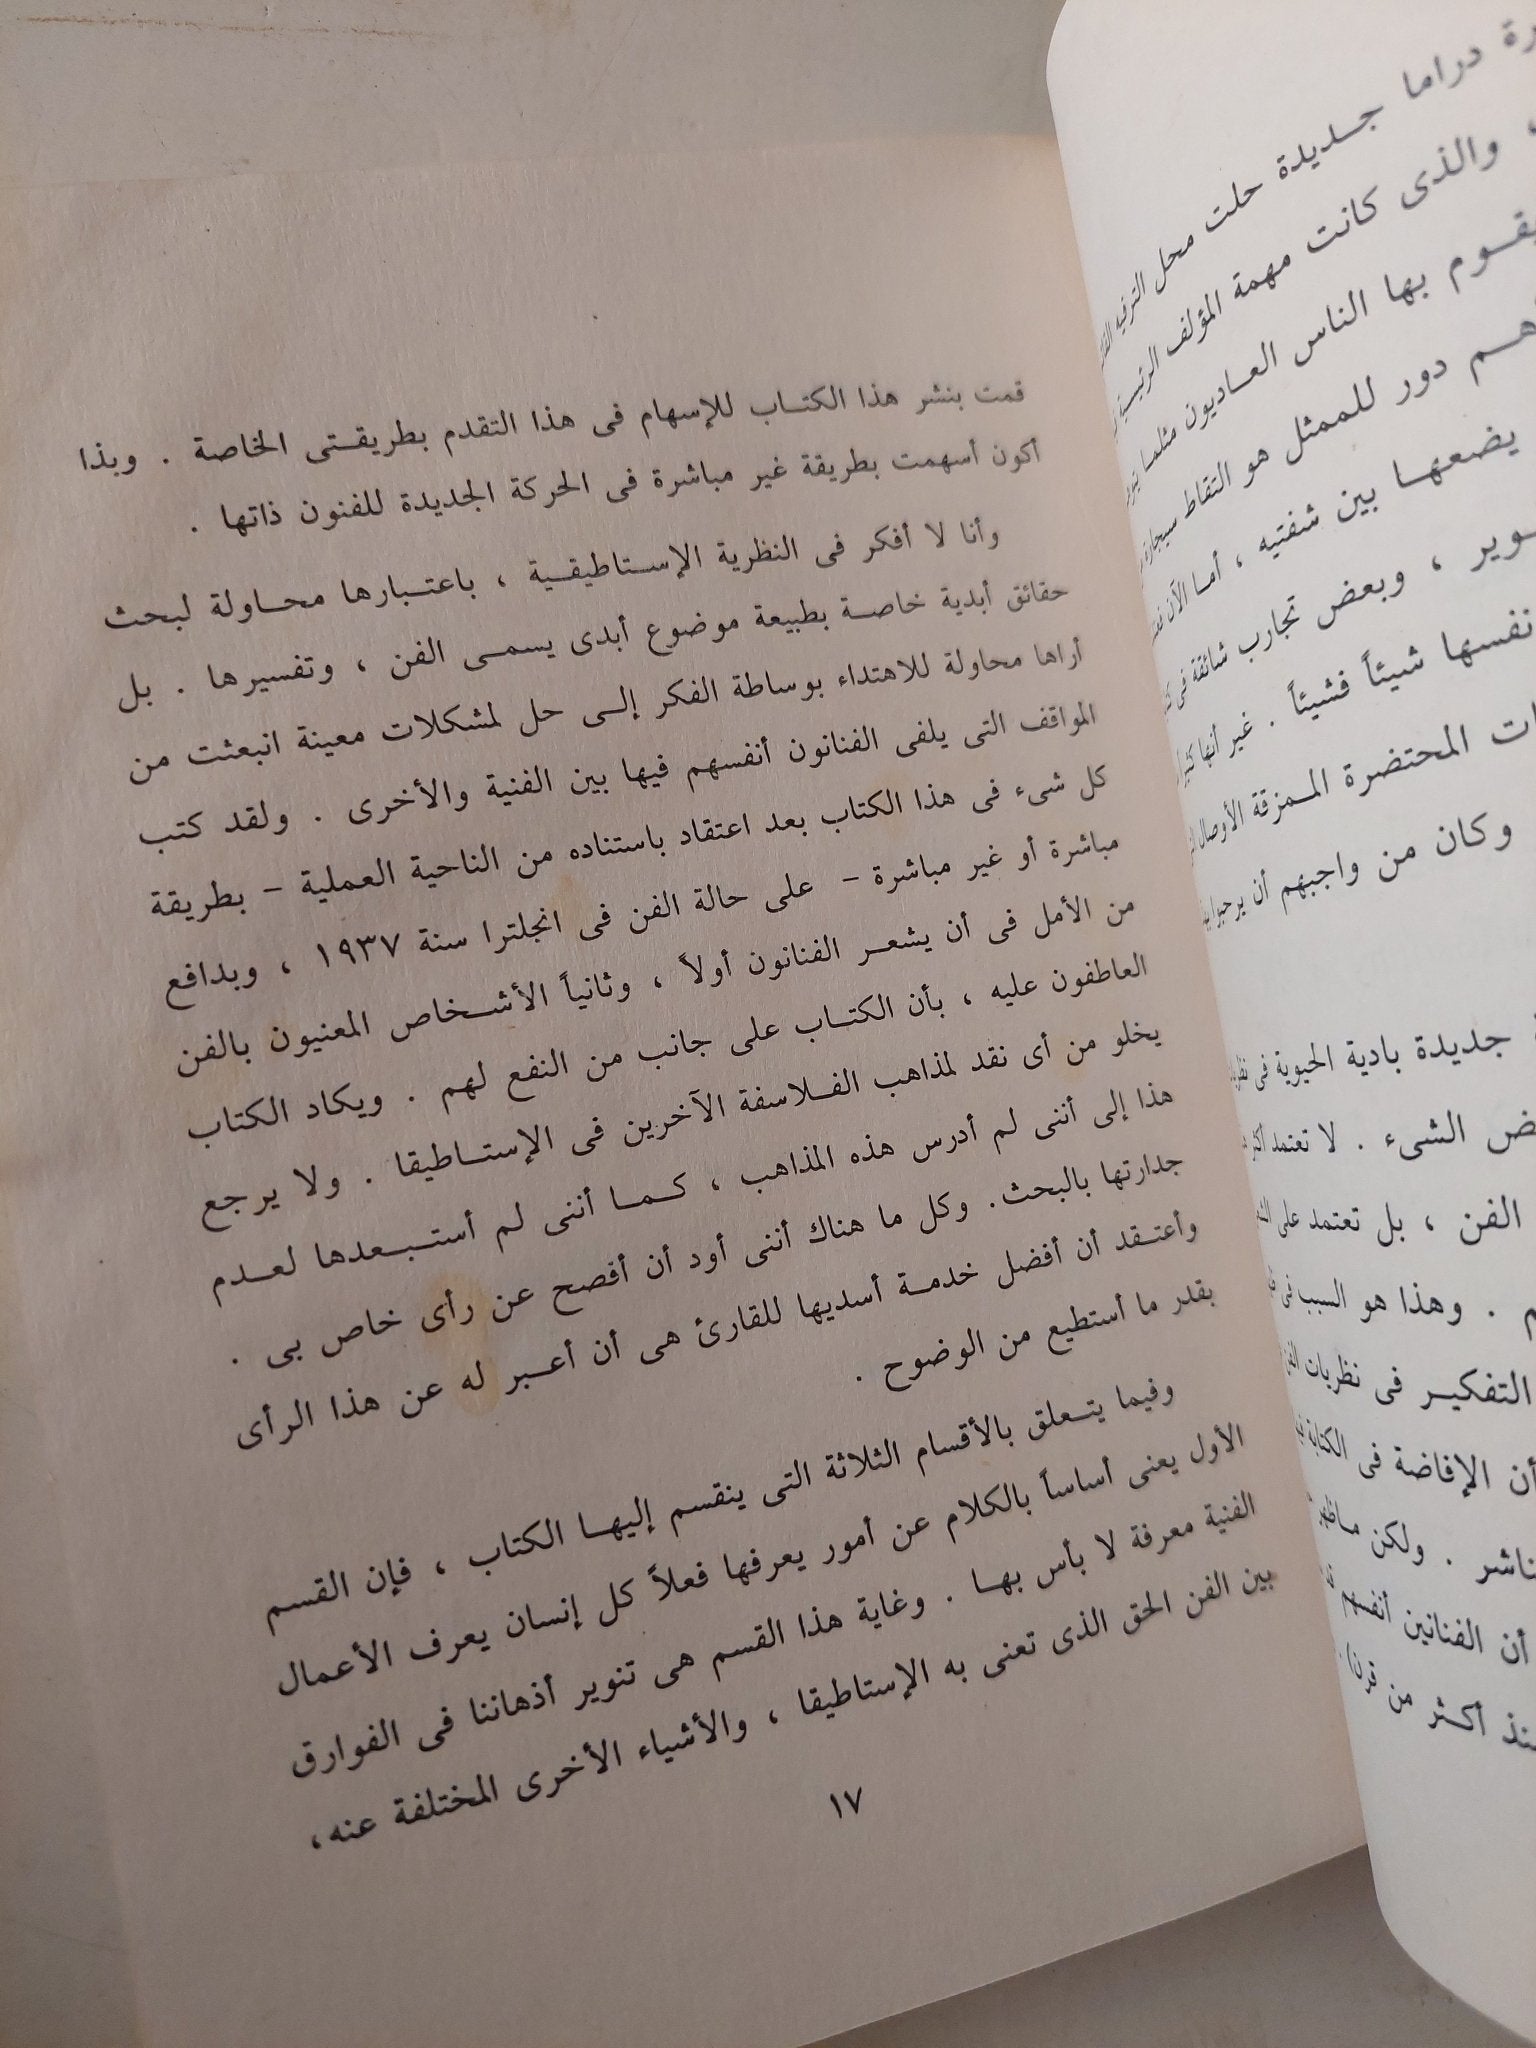 قمت بنشر هذا الكتاب للإسهام فى هذا التقدم بطريقتى الخاصة . وبذا
أكون أسهمت بطريقة غير مباشرة فى الحركة الجديدة للفنون ذاتها .
وأنا لا أفكر فى النظرية الإستاطيقية ، باعتبارها محاولة لبحث
حقائق أبدية خاصة بطبيعة موضوع أبدى يسمى الفن ، وتفسيرها . بل
أراها محاولة للاهتداء بوساطة الفكر إلى حل لمشكلات معينة انبعثت من
المواقف التى يلفى الفنانون أنفسهم فيها بين الفنية والأخرى . ولقد كتب
كل شىء فى هذا الكتاب بعد اعتقاد باستناده من الناحية العملية – بطريقة
مباشرة أو غير مباشرة – على حالة الفن فى انجلترا سنة ١٩٣٧ ، وبدافع
من الأمل فى أن يشعر الفنانون أولاً ، وثانياً الأشخاص المعنيون بالفن
العاطفون عليه ، بأن الكتاب على جانب من النفع لهم . ويكاد الكتاب
يخلو من أى نقد لمذاهب الفلاسفة الآخرين فى الإستاطيقا . ولا يرجع
هذا إلى أننى لم أدرس هذه المذاهب ، كما أننى لم أستبعدها لعدم
جدارتها بالبحث. وكل ما هناك أننى أود أن أفصح عن رأى خاص بى .
وأعتقد أن أفضل خدمة أسديها للقارئ هى أن أعبر له عن هذا الرأى
بقدر ما أستطيع من الوضوح .
وفيما يتعلق بالأقسام الثلاثة التى ينقسم إليها الكتاب ، فإن القسم
الأول يعنى أساساً بالكلام عن أمور يعرفها فعلاً كل إنسان يعرف الأعمال
الفنية معرفة لا بأس بها . وغاية هذا القسم هى تنوير أذهاننا فى الفوارق
بين الفن الحق الذى تعنى به الإستاطيقا ، والأشياء الأخرى المختلفة عنه،
١٧
دراما جديدة حلت محل الترفيه
والذى كانت مهمة المؤلف
يقوم بها الناس العاديون مثلما
دور للممثل هو التقاط سيجارة
يضعها بين شفتيه ، أما الآن
، وبعض تجارب شائقة فى
نفسها شيئاً فشيئاً . غير أنها
المحتضرة الممزقة الأوصال
وكان من واجبهم أن يرحبوا
جديدة بادية الحيوية فى
الشىء . لا تعتمد
الفن ، بل تعتمد على
. وهذا هو السبب فى
التفكير فى نظريات الفن
أن الإفاضة فى الكتابة
. ولكن
أن الفنانين أنفسهم
أكثر من قرن)